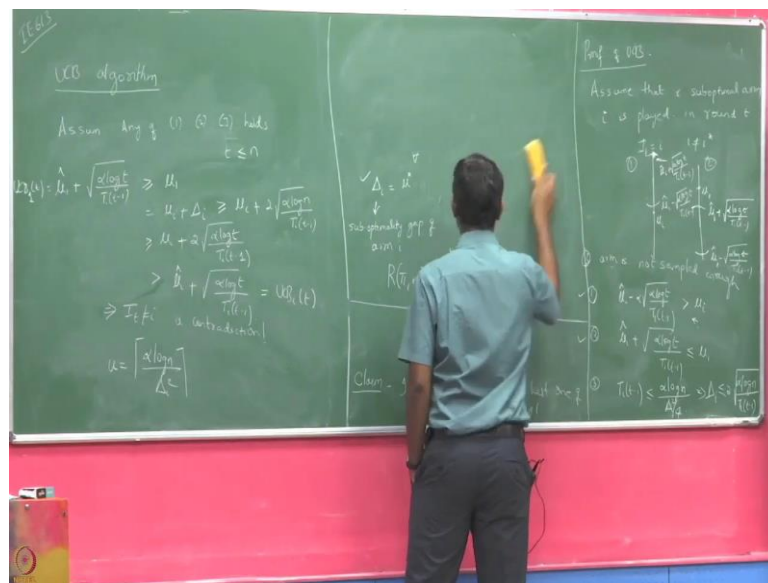 IE613
UCB algorithm
Assum any of (1) (2) (3) holds
t ≤ n
UCB₁(t) = μ̂₁ + √(αlogt / T₁(t-1)) ≥ μ₁
= μᵢ + Δᵢ ≥ μᵢ + 2√(αlogn / Tᵢ(t-1))
≥ μᵢ + 2√(αlogt / Tᵢ(t-1))
> μ̂ᵢ + √(αlogt / Tᵢ(t-1)) = UCBᵢ(t)
⇒ Iₜ ≠ i a contradiction!
u = ⌈αlogn / Δᵢ²⌉
Δᵢ = μ*
suboptimality gap of
arm i
R(π,
Claim -
least one of
Proof of UCB.
Assume that a suboptimal arm
i is played in round t
Iₜ = i i ≠ i*
① ②
μ̂ᵢ + √(αlogt / Tᵢ(t-1))
μ̂ᵢ - √(αlogt / Tᵢ(t-1))
arm is not sampled enough
① μ̂ᵢ - √(αlogt / Tᵢ(t-1)) > μᵢ
② μ̂₁ + √(αlogt / T₁(t-1)) ≤ μ₁
③ Tᵢ(t-1) ≤ αlogn / Δᵢ²/4 ⇒ Δᵢ ≤ 2√(αlogn / Tᵢ(t-1))